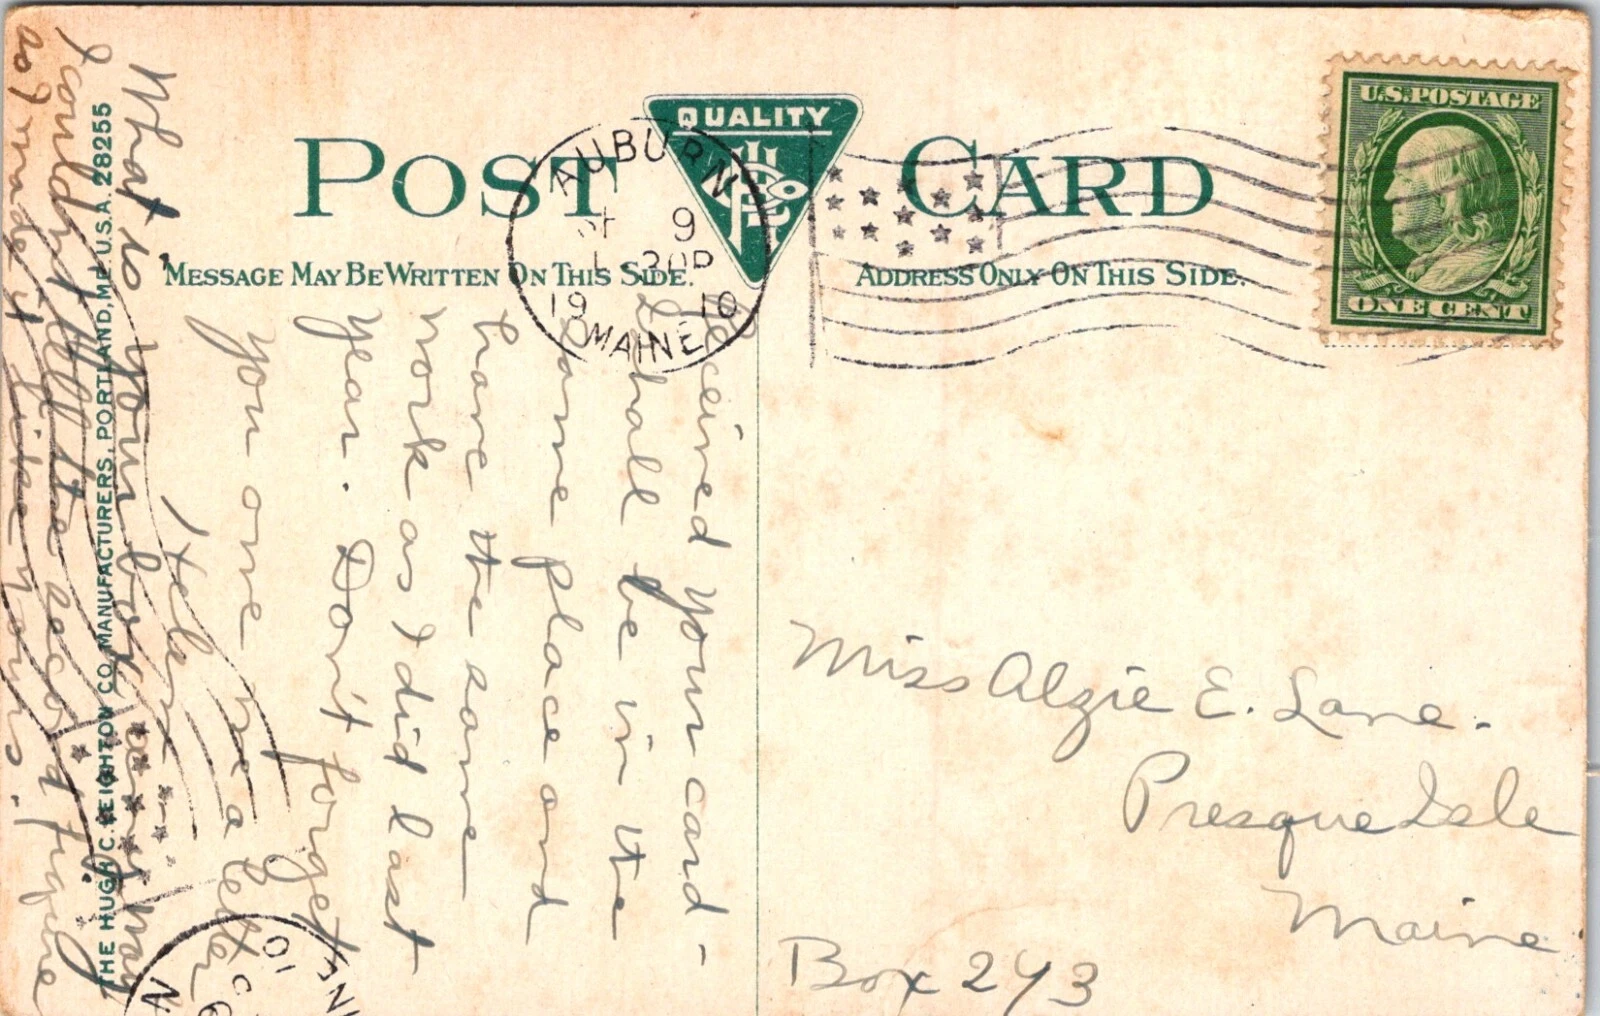 POST CARD
QUALITY
MESSAGE MAY BE WRITTEN ON THIS SIDE.
ADDRESS ONLY ON THIS SIDE.
AUBURN
9
30P
19 10
MAINE
U.S. POSTAGE
ONE CENT
Received your card -
I shall be in the
same place and
have the same
work as I did last
year. Don't forget
you owe me a letter
Helen
What is your box
I couldn't tell the second figure
as I made it like yours.
THE HUGH C. LEIGHTON CO., MANUFACTURERS, PORTLAND, ME., U.S.A. 28255
Miss Alzie E. Lane.
Presque Isle
Maine.
Box 243